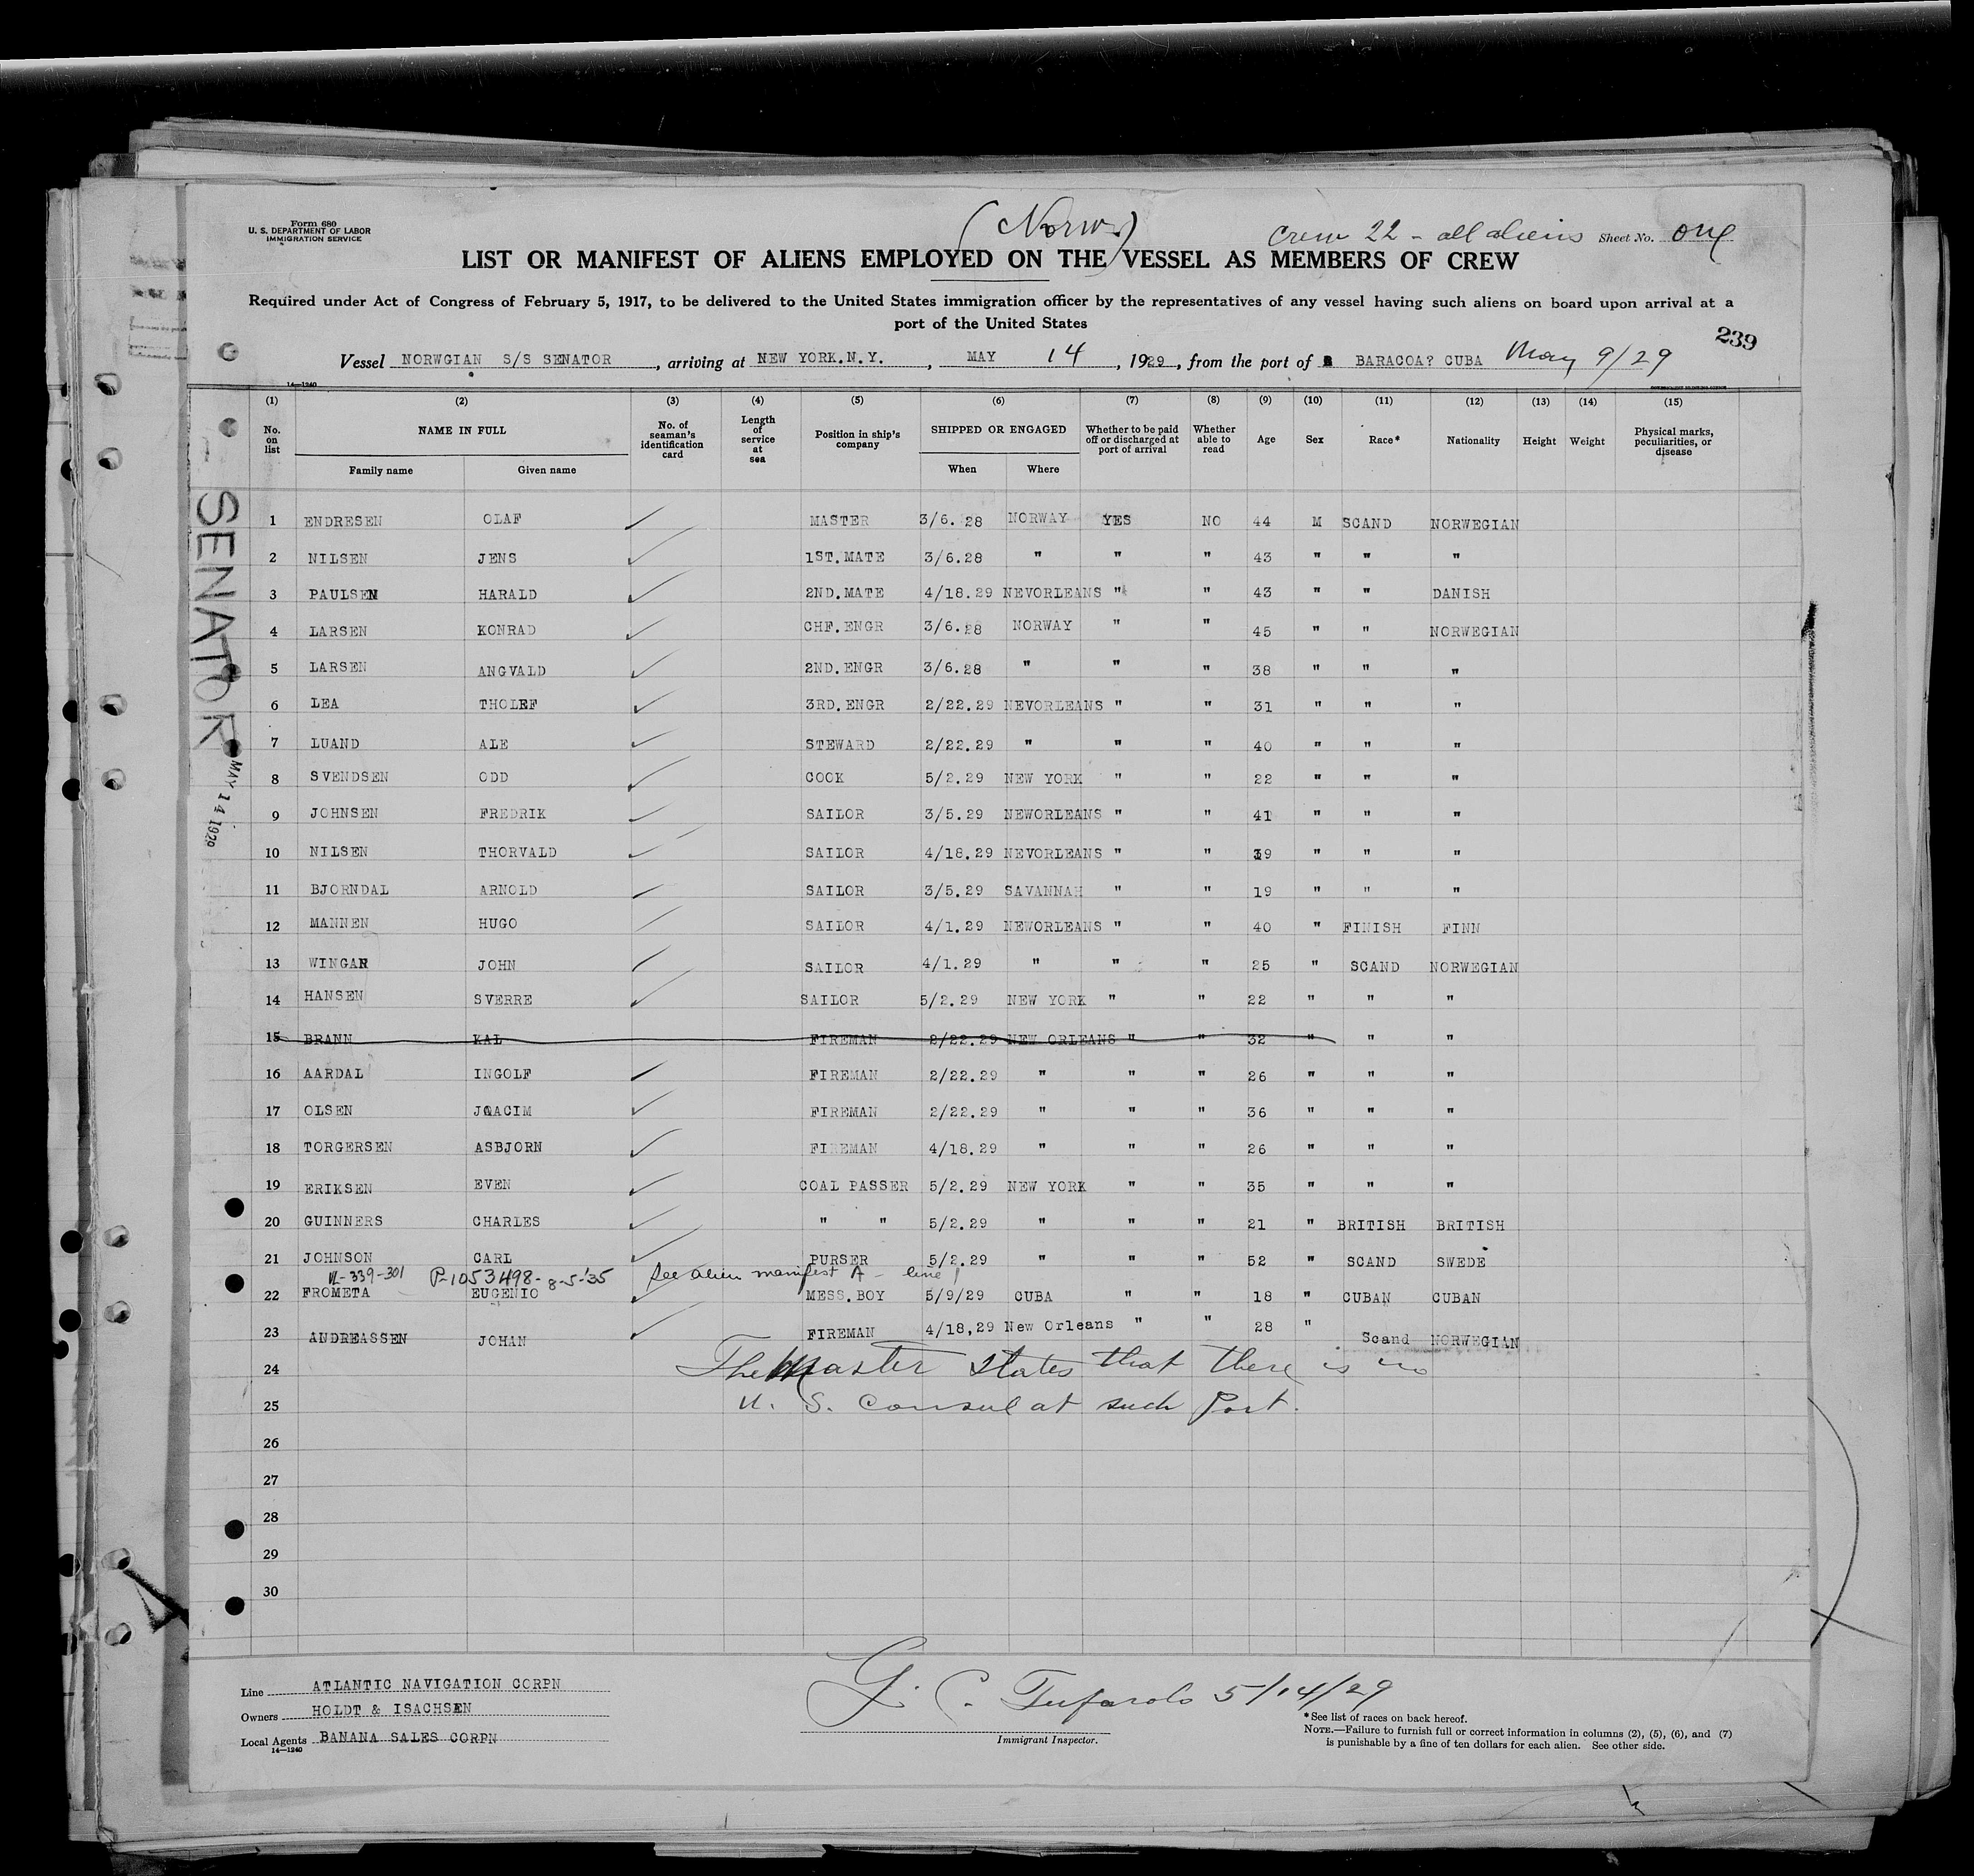 Form 680
U. S. DEPARTMENT OF LABOR
IMMIGRATION SERVICE
(Norw.)
Crew 22 - all aliens Sheet No. one
LIST OR MANIFEST OF ALIENS EMPLOYED ON THE VESSEL AS MEMBERS OF CREW
Required under Act of Congress of February 5, 1917, to be delivered to the United States immigration officer by the representatives of any vessel having such aliens on board upon arrival at a
port of the United States
239
Vessel NORWGIAN S/S SENATOR, arriving at NEW YORK.N.Y., MAY 14, 1929, from the port of BARACOA? CUBA May 9/29
14—1240
(1) (2) (3) (4) (5) (6) (7) (8) (9) (10) (11) (12) (13) (14) (15)
No. on list NAME IN FULL Family name Given name No. of seaman's identification card Length of service at sea Position in ship's company SHIPPED OR ENGAGED When Where Whether to be paid off or discharged at port of arrival Whether able to read Age Sex Race* Nationality Height Weight Physical marks, peculiarities, or disease
SENATOR
MAY 14 1929
1 ENDRESEN OLAF MASTER 3/6.28 NORWAY YES NO 44 M SCAND NORWEGIAN
2 NILSEN JENS 1ST.MATE 3/6.28 " " " 43 " " "
3 PAULSEN HARALD 2ND.MATE 4/18.29 NEVORLEANS " " 43 " " DANISH
4 LARSEN KONRAD CHF.ENGR 3/6.28 NORWAY " " 45 " " NORWEGIAN
5 LARSEN ANGVALD 2ND.ENGR 3/6.28 " " " 38 " " "
6 LEA THOLEF 3RD.ENGR 2/22.29 NEVORLEANS " " 31 " " "
7 LUAND ALE STEWARD 2/22.29 " " " 40 " " "
8 SVENDSEN ODD COOK 5/2.29 NEW YORK " " 22 " " "
9 JOHNSEN FREDRIK SAILOR 3/5.29 NEWORLEANS " " 41 " " "
10 NILSEN THORVALD SAILOR 4/18.29 NEVORLEANS " " 39 " " "
11 BJORNDAL ARNOLD SAILOR 3/5.29 SAVANNAH " " 19 " " "
12 MANNEN HUGO SAILOR 4/1.29 NEWORLEANS " " 40 " FINISH FINN
13 WINGAR JOHN SAILOR 4/1.29 " " " 25 " SCAND NORWEGIAN
14 HANSEN SVERRE SAILOR 5/2.29 NEW YORK " " 22 " " "
15 BRANN KAL FIREMAN 2/22.29 NEW ORLEANS " " 32 " " "
16 AARDAL INGOLF FIREMAN 2/22.29 " " " 26 " " "
17 OLSEN JOACIM FIREMAN 2/22.29 " " " 36 " " "
18 TORGERSEN ASBJORN FIREMAN 4/18.29 " " " 26 " " "
19 ERIKSEN EVEN COAL PASSER 5/2.29 NEW YORK " " 35 " " "
20 GUINNERS CHARLES " " 5/2.29 " " " 21 " BRITISH BRITISH
21 JOHNSON CARL PURSER 5/2.29 " " " 52 " SCAND SWEDE
VL-339-301 P-1053498-8-5-'35 See alien manifest A - line 1
22 FROMETA EUGENIO MESS.BOY 5/9/29 CUBA " " 18 " CUBAN CUBAN
23 ANDREASSEN JOHAN FIREMAN 4/18,29 New Orleans " " 28 " Scand NORWEGIAN
24 The Master states that there is no
25 U. S. Consul at such Port.
26
27
28
29
30
Line ATLANTIC NAVIGATION CORPN
Owners HOLDT & ISACHSEN
Local Agents BANANA SALES CORPN
14—1240
G. C. Tufarolo 5/14/29
Immigrant Inspector.
*See list of races on back hereof.
NOTE.—Failure to furnish full or correct information in columns (2), (5), (6), and (7)
is punishable by a fine of ten dollars for each alien. See other side.